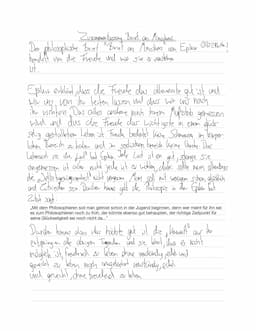 Zusammenfassung Brief an Menoikeus
Der philosophische Brief "Brief an Menoikeus" von Epikur
handelt von die Freude und wie sie zu
ist.
Epikur erklärt, dass die Freude das allererste gut ist und
wir uns von ihr leiten lassen und dass wir uns nach
ihr richten. Das alles andere nach ihrem Maßstab gemessen
wird und dass die Freude das Wichtigste in einem glück-
selig gestalteten Leben ist. Freude bedeutet keine Schmerzen im körper-
lichen Bereich zu haben und im seelischen Bereich keine Unruhe. Das
ist, dass laut Epikur jede Lust ist ein gut, solange sie
angemessen ist oder nicht jede ist zu wählen, dabei sollte man besonders
die "Selbstgenügsamkeit" nicht vergessen. Man soll mit wenigem schon glücklich
und zufrieden sein. Darüber hinaus gibt die Philosophie in den Epikur laut
Zitat sagt:
„Mit dem Philosophieren soll man getrost schon in der Jugend beginnen, denn wer meint für ihn sei
es zum Philosophieren noch zu früh, der könnte ebenso gut behaupten, der richtige Zeitpunkt für
seine Glückseligkeit sei noch nicht da..."
Darüber hinaus das höchste gut ist die „Vernunft" aus ihr
entspringen alle übrigen Tugenden und sie lehrt, dass es nicht
möglich ist, freudvoll zu leben ohne verständig, edel und
gerecht zu leben noch umgekehrt verständig, edel
und gerecht, ohne freudvoll zu leben.